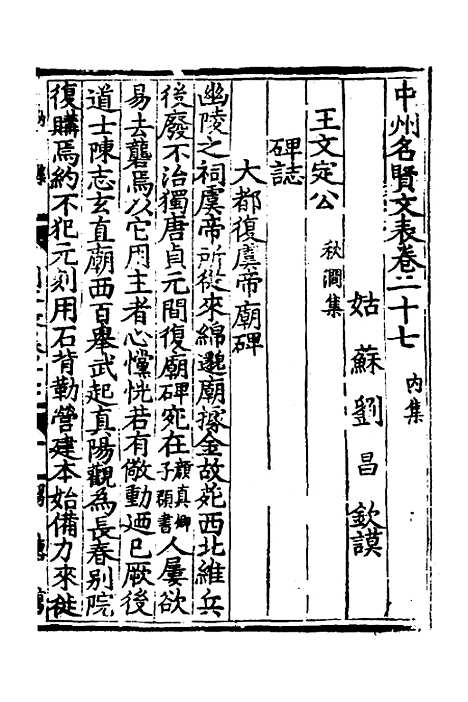 中州名賢文表卷二十七 內集
姑蘇劉昌欽謨
王文定公 秋澗集
碑誌
大都復虞帝廟碑
幽陵之祠虞帝所從來綿邈廟據金故苑西北維兵
後廢不治獨唐貞元間復廟碑宛在顏真卿子頵書人屢欲
易去礱焉以它用主者心戃恍若有儆動迺已厥後
道士陳志玄直廟西百舉武起真陽觀為長春別院
復購焉約不犯元刻用石背勒營建本始備力來徙